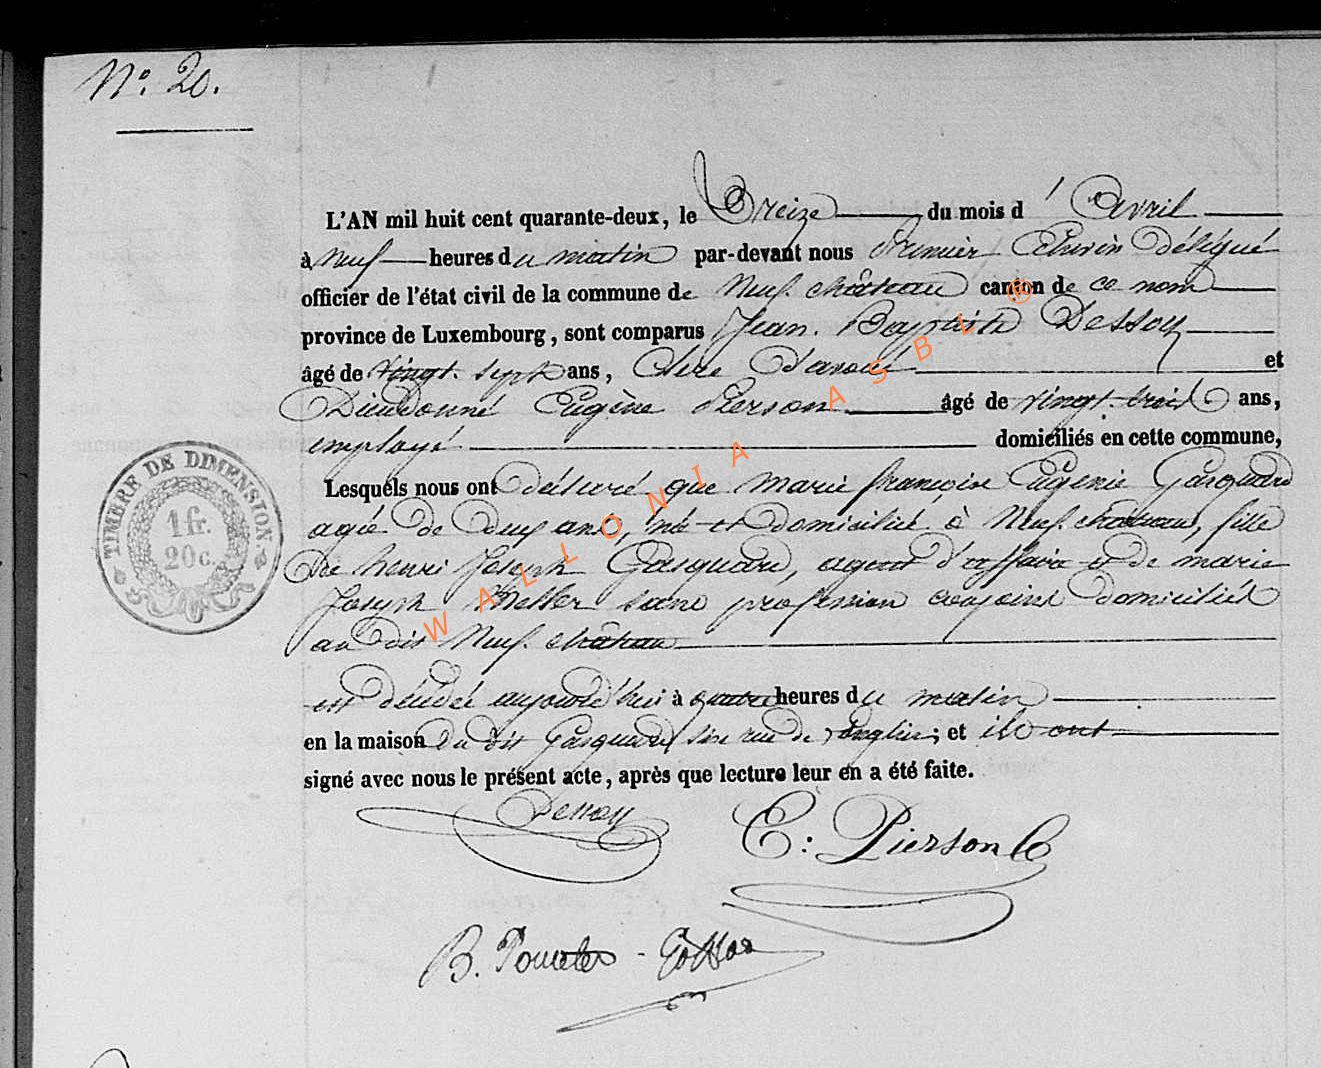 N° 20.
L'AN mil huit cent quarante-deux, le Treize du mois d'Avril
à neuf heures du matin par-devant nous Premier Echevin délégué
officier de l'état civil de la commune de Neufchâteau canton de ce nom
province de Luxembourg, sont comparus Jean-Baptiste Dessoy
âgé de vingt-sept ans, Clerc d'avoué et
Dieudonné Eugène Pierson âgé de vingt-trois ans,
employé domiciliés en cette commune,
Lesquels nous ont déclaré que marie françoise Eugenie Gasquard
agée de deux ans, née et domiciliée à Neufchateau, fille
de henri Joseph Gasquard, agent d'affaire et de marie
Joseph sans profession conjoins domiciliés
au dit Neufchâteau
est décédée aujourd'hui à quatre heures du matin
en la maison du dit Gasquard sise rue de ; et ils ont
signé avec nous le présent acte, après que lecture leur en a été faite.
Dessoy
E: Pierson
B.
TIMBRE DE DIMENSION
1 fr.
20c.
WALLONIA ASBL ®